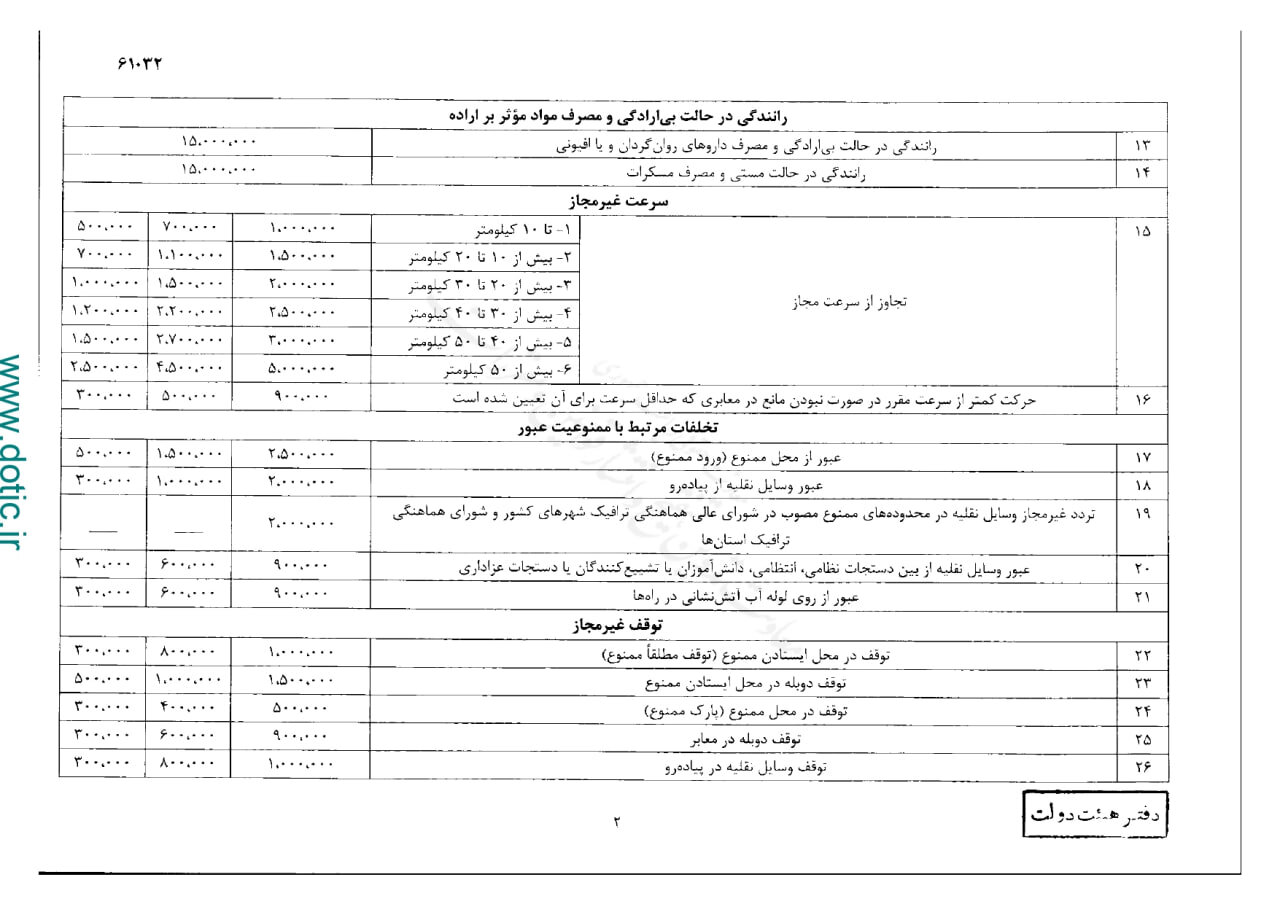 ۶۱۰۳۲
رانندگی در حالت بی‌ارادگی و مصرف مواد مؤثر بر اراده
۱۳ رانندگی در حالت بی‌ارادگی و مصرف داروهای روان‌گردان و یا افیونی ۱۵،۰۰۰،۰۰۰
۱۴ رانندگی در حالت مستی و مصرف مسکرات ۱۵،۰۰۰،۰۰۰
سرعت غیرمجاز
۱۵ تجاوز از سرعت مجاز
۱- تا ۱۰ کیلومتر ۱،۰۰۰،۰۰۰ ۷۰۰،۰۰۰ ۵۰۰،۰۰۰
۲- بیش از ۱۰ تا ۲۰ کیلومتر ۱،۵۰۰،۰۰۰ ۱،۱۰۰،۰۰۰ ۷۰۰،۰۰۰
۳- بیش از ۲۰ تا ۳۰ کیلومتر ۲،۰۰۰،۰۰۰ ۱،۵۰۰،۰۰۰ ۱،۰۰۰،۰۰۰
۴- بیش از ۳۰ تا ۴۰ کیلومتر ۲،۵۰۰،۰۰۰ ۲،۲۰۰،۰۰۰ ۱،۲۰۰،۰۰۰
۵- بیش از ۴۰ تا ۵۰ کیلومتر ۳،۰۰۰،۰۰۰ ۲،۷۰۰،۰۰۰ ۱،۵۰۰،۰۰۰
۶- بیش از ۵۰ کیلومتر ۵،۰۰۰،۰۰۰ ۴،۵۰۰،۰۰۰ ۲،۵۰۰،۰۰۰
۱۶ حرکت کمتر از سرعت مقرر در صورت نبودن مانع در معابری که حداقل سرعت برای آن تعیین شده است ۹۰۰،۰۰۰ ۵۰۰،۰۰۰ ۳۰۰،۰۰۰
تخلفات مرتبط با ممنوعیت عبور
۱۷ عبور از محل ممنوع (ورود ممنوع) ۲،۵۰۰،۰۰۰ ۱،۵۰۰،۰۰۰ ۵۰۰،۰۰۰
۱۸ عبور وسایل نقلیه از پیاده‌رو ۲،۰۰۰،۰۰۰ ۱،۰۰۰،۰۰۰ ۳۰۰،۰۰۰
۱۹ تردد غیرمجاز وسایل نقلیه در محدوده‌های ممنوع مصوب در شورای عالی هماهنگی ترافیک شهرهای کشور و شورای هماهنگی
ترافیک استان‌ها ۲،۰۰۰،۰۰۰ — —
۲۰ عبور وسایل نقلیه از بین دستجات نظامی، انتظامی، دانش‌آموزان یا تشییع‌کنندگان یا دستجات عزاداری ۹۰۰،۰۰۰ ۶۰۰،۰۰۰ ۳۰۰،۰۰۰
۲۱ عبور از روی لوله آب آتش‌نشانی در راه‌ها ۹۰۰،۰۰۰ ۶۰۰،۰۰۰ ۳۰۰،۰۰۰
توقف غیرمجاز
۲۲ توقف در محل ایستادن ممنوع (توقف مطلقاً ممنوع) ۱،۰۰۰،۰۰۰ ۸۰۰،۰۰۰ ۳۰۰،۰۰۰
۲۳ توقف دوبله در محل ایستادن ممنوع ۱،۵۰۰،۰۰۰ ۱،۰۰۰،۰۰۰ ۵۰۰،۰۰۰
۲۴ توقف در محل ممنوع (پارک ممنوع) ۵۰۰،۰۰۰ ۴۰۰،۰۰۰ ۳۰۰،۰۰۰
۲۵ توقف دوبله در معابر ۹۰۰،۰۰۰ ۶۰۰،۰۰۰ ۳۰۰،۰۰۰
۲۶ توقف وسایل نقلیه در پیاده‌رو ۱،۰۰۰،۰۰۰ ۸۰۰،۰۰۰ ۳۰۰،۰۰۰
۲
دفتر هیئت دولت
www.dotic.ir